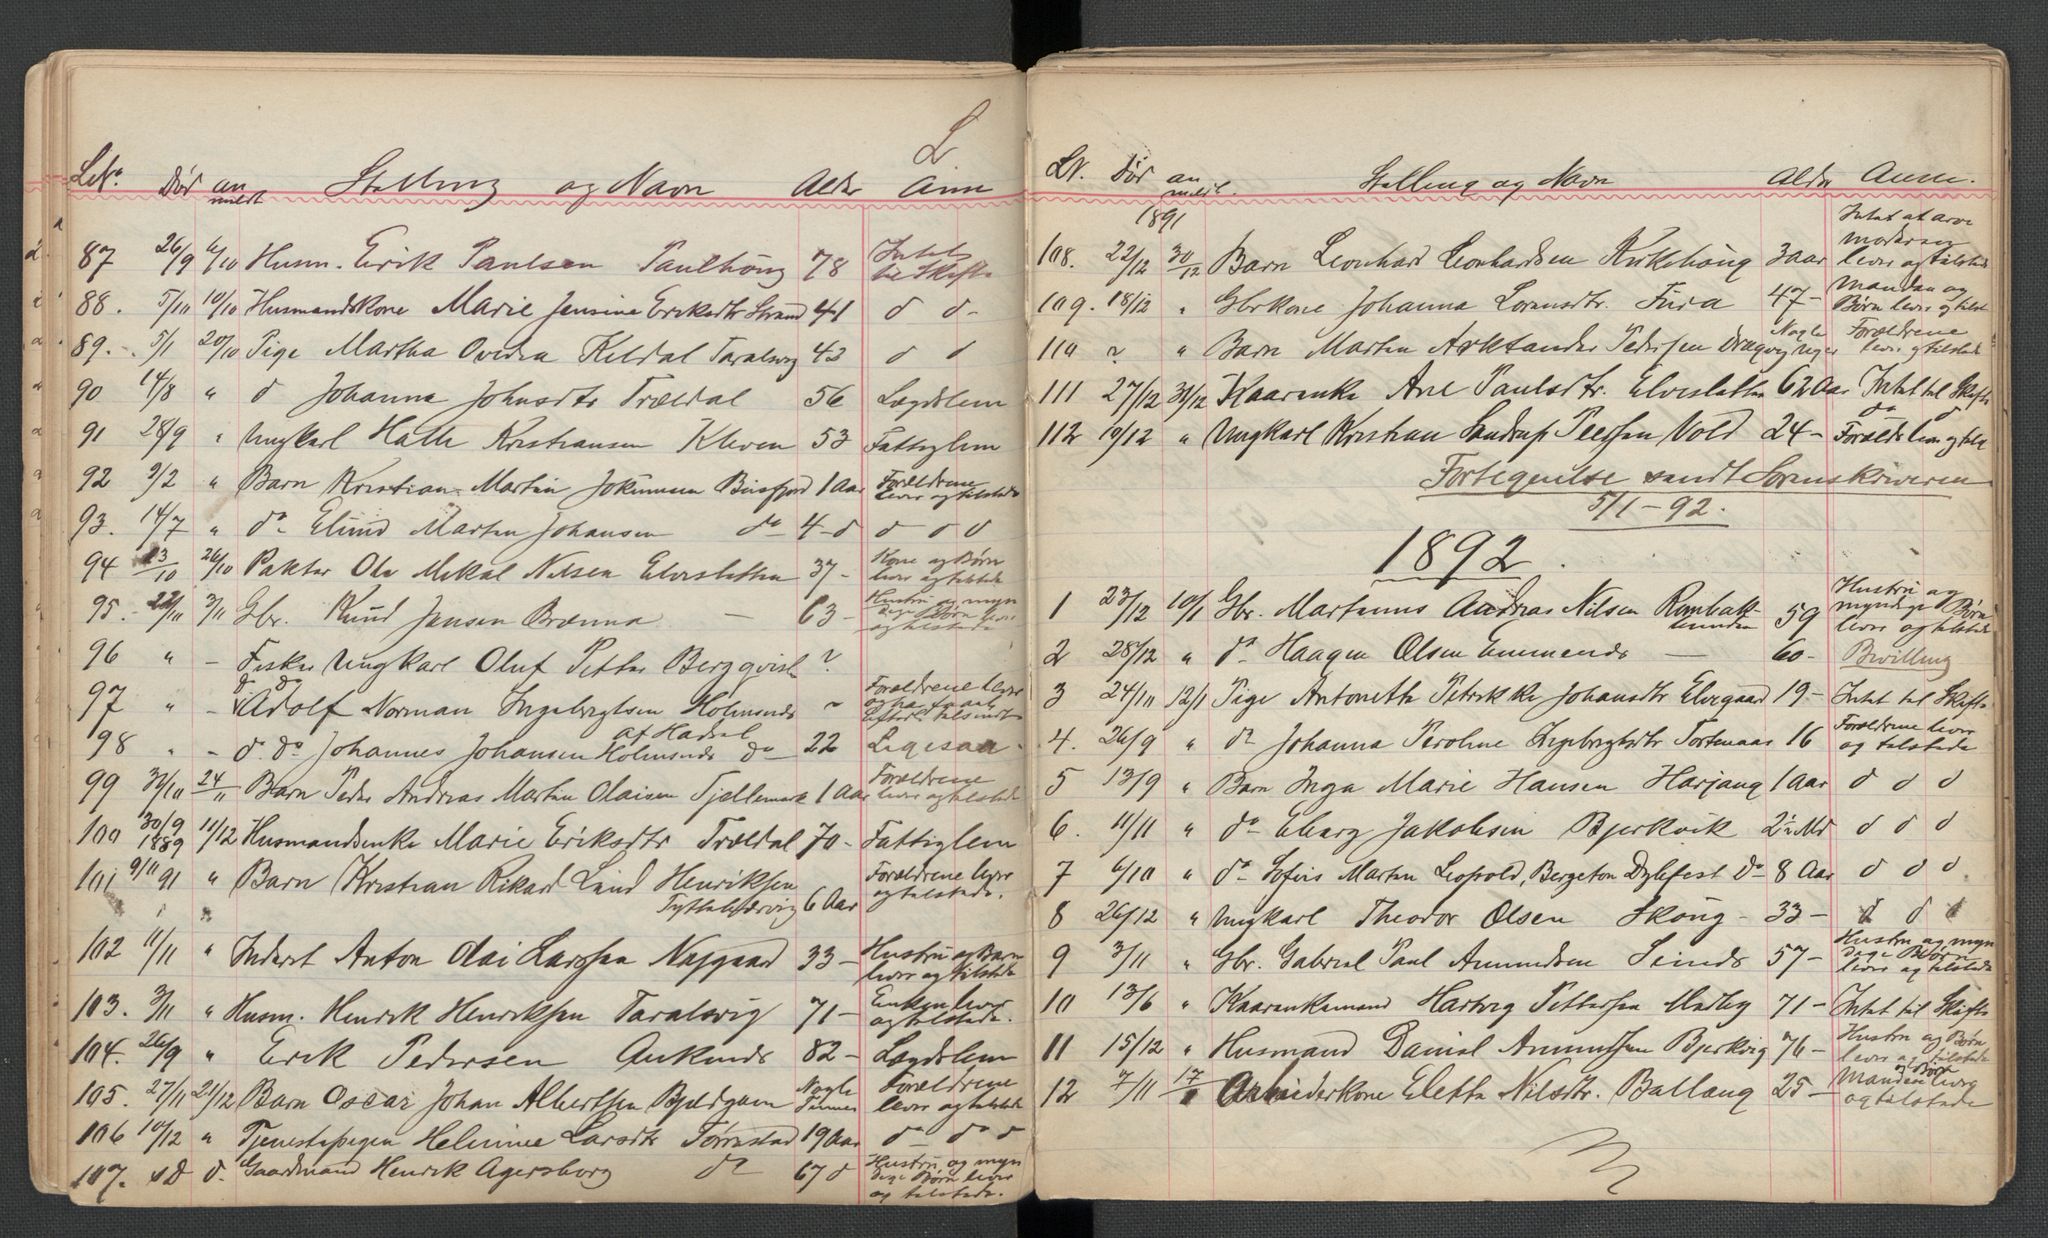 L
LNo. Død anmeldt Stilling og Navn Alder Anm
87 26/9 6/10 Husm. Erik Paulsen Paulhöug 78 Intet til Skifte
88. 5/10 10/10 Husmandskone Marie Jensine Eriksdtr Strand 41 d d-
89. 5/1 20/10 Pige Martha Ovedia Kildal Taralsvig 43 d d
90 14/8 " d Johanna Johnsdtr Trældal 56 Lægdslem
91 28/9 " Ungkarl Halle Kristiansen Kleven 53 Fattiglem
92 2/2 " Barn Kristian Martin Jokumsen Bøisfjord 1 Aar Forældrene lever og tilstede
93. 14/7 " do Elind Martin Johansen do 4 d d d d
94 23/10 26/10 Pakter Ole Mikal Nilsen Elveslatten 37- Kone og Børn lever og tilstede
95. 22/10 3/11 Gbr. Knud Jensen Brænna — 63- Hustru og myndige Børn lever og tilstede
96 " - Fisker Ungkarl Oluf Petter Bergqvist ?
97 " - d do Adolf Norman Ingebrigtsen Holmsnds ~ Forældrene lever
98 " - d. do Johannes Johansen Holmsnds do 22 Ligesaa
af Hadsel
99 30/10 24/11 Barn Peder Andreas Martin Olaisen Fjellemark 1 Aar Forældrene lever og tilstede
100 30/9 1889 11/12 Husmandsenke Marie Eriksdtr Trældal 70- Fattiglem
101 9/11 91 " Barn Kristian Rikard Lind Henriksen 6 Aar Forældrene lever og tilstede.
102 11/11 " Inderst Anton Olai Larssen Nygaard 33- Hustru og Barn lever og tilstede
103. 3/11 " Husm. Henrik Henriksen Taralsvig 71- Enken lever og tilstede.
104. 26/9 " Erik Pedersen Ankenæs 82- Lægdslem
105. 27/11 21/12 Barn Oscar Johan Albertsen Bjeldgam Nogle Timer Forældrene lever og tilstede
106 10/12 " Tjenestepigen Helmine Larsdtr Tørrestad 19 Aar do do d
107. d d. Gaardmand Henrik Agersborg do 67 d Hustru og myndige Børn lever og tilstede.
LN. Død anmeldt. Stilling og Navn Alder Anm.
1891
108. 22/12 30/12 Barn Leonhard Leonhardsen Kirkehöug 3 aar Intet at arve moderen lever og tilstede
109. 18/12 " Gbrkone Johanna Lorensdtr. Furu 47- Manden og Børn lever og tilst
110 ~ " Barn Martin Arktander Pedersen Drægvig Nogle Uger Forældrene lever og tilstede
111 27/12 31/12 Kaarenke Ane Paulsdtr. Elveslatten 62 Aar Intet til Skifte
112 19/12 " Ungkarl Kristian Sandrup Peersen Vold 24- do d Foræld leve og tilst
Fortegnelse sendt Sorenskriveren
5/1-92.
1892
1 23/12 10/1 Gbr. Martinus Andreas Nilsen Rombaksbunden 59 Hustru og myndige Børn lever og tilstede
2 28/12 " do Haagen Olsen Emmenes — 60- Bevilling
3 24/11 12/1 Pige Antoneth Petrikke Johansdtr Elvegaard 19- Intet til Skifte
4. 26/9 " do Johanna Peroline Ingebrigtsdtr Tortenaas 16 Forældrene lever og tilstede
5 13/9 " Barn Inga Marie Hansen Harjang 1 Aar d d d
6. 11/11 " do Eberg Jakobsen Bjerkvik 2½ Md d d d
7 6/10 " do Sofus Martin Leopold, Bergeton Dybfest do 8 Aar d d d
8 26/12 " Ungkarl Theodor Olsen Skoug - 33- d d d
9 3/11 " Gbr. Gabriel Paul Amundsen Seines 57- Hustru og myndige Børn lever og tilstede
10 13/6 " Kaarenkemand Hartvig Pettersen Medby 71- Intet til Skifte
11 15/12 " Husmand Daniel Amundsen Bjerkvig 76- Hustru og Børn lever og tilstede
12 7/11 17/1 Arbeiderkone Eletta Nilsdtr. Ballang 25- Manden og Børn lever og tilstede